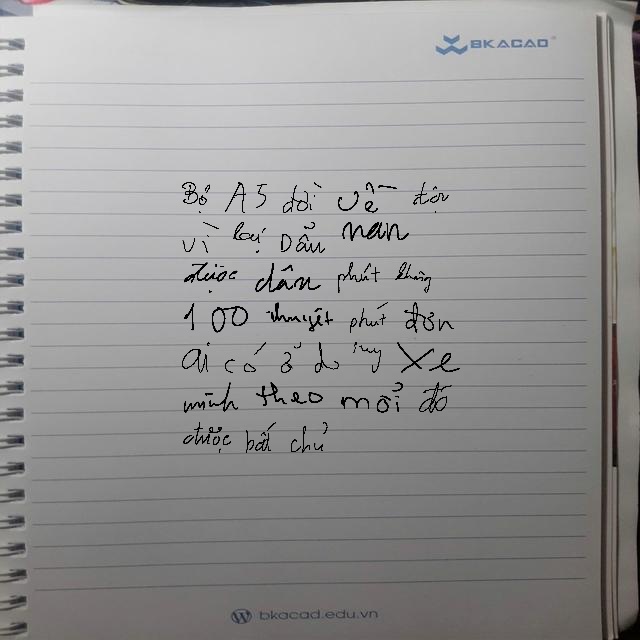 BKACAD
Bộ A5 dời về độn
vì loại Dẫu nan
được dân phút không
100 thuyết phút đơn
ai có ở dụng Xe
mình theo mỗi đó
được bất chủ
bkacad.edu.vn